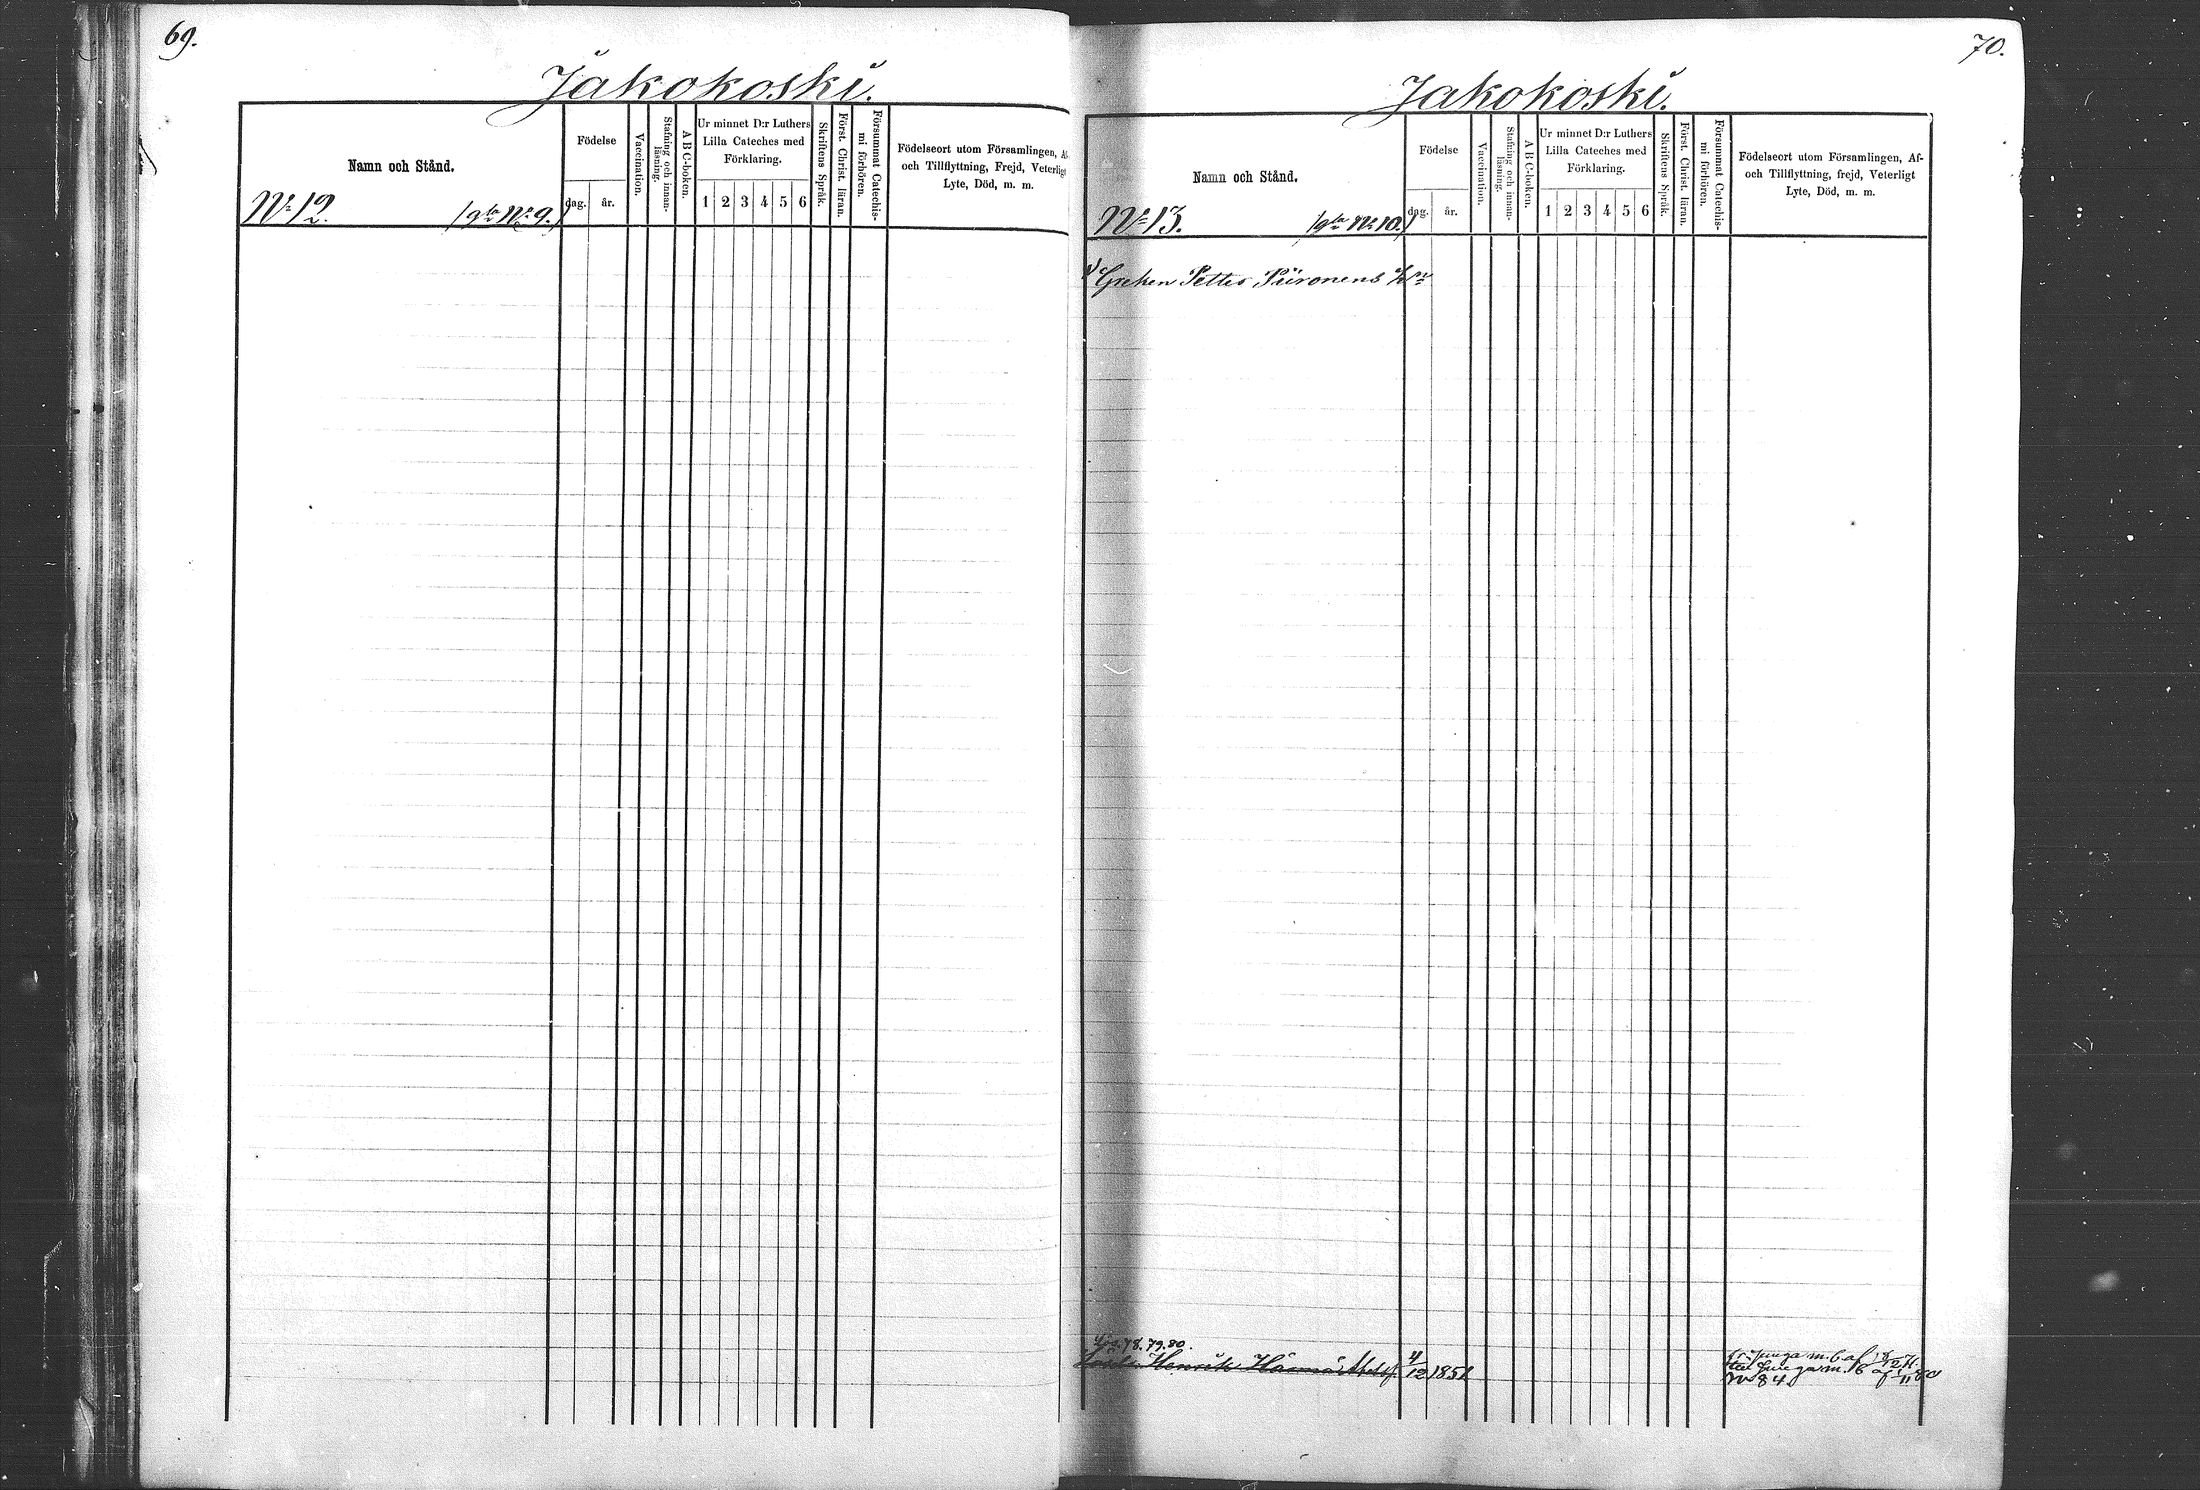 69.
Jakokoski.
Namn och Stånd.
Födelse
dag. år.
Vaccination.
Stafning och innan-
läsning.
A B C-boken.
Ur minnet D:r Luthers
Lilla Cateches med
Förklaring.
1 2 3 4 5 6
Skriftens Språk.
Först. Christ. läran.
Försummat Catechis-
mi förhören.
Födelseort utom Församlingen, Af-
och Tillflyttning, Frejd, Veterligt
Lyte, Död, m. m.
No 12. (gla No 9.)
70.
Jakokoski.
Namn och Stånd.
Födelse
dag. år.
Vaccination.
Stafning och innan-
läsning.
A B C-boken.
Ur minnet D:r Luthers
Lilla Cateches med
Förklaring.
1 2 3 4 5 6
Skriftens Språk.
Först. Christ. läran.
Försummat Catechis-
mi förhören.
Födelseort utom Församlingen, Af-
och Tillflyttning, frejd, Veterligt
Lyte, Död, m. m.
No 13. (gla No 10.)
Greken Petter Piironens
78. 79. 80.
Henrik 4/12 1851
fr. Junga m. b. af
till Junga m. b. af 80
No 84.